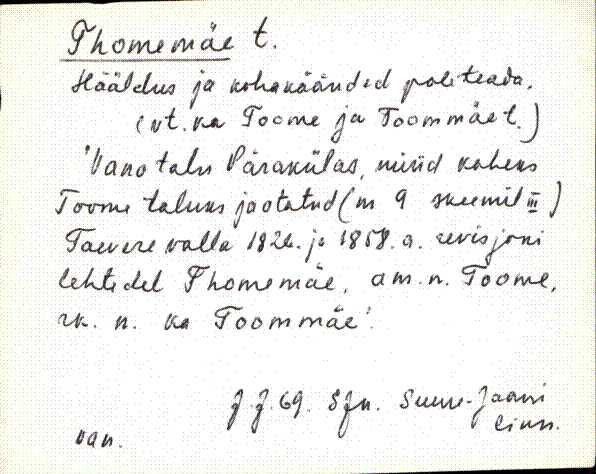 Thomemäe t.
Hääldus ja kohakäänded pole teada.
(vt. ka Toome ja Toommäe t.)
'Vana talu Pärakülas, nüüd kaheks
Toome taluks jaotatud (m 9 skeemil III)
Taevere valla 1826. ja 1858. a. revisjoni
lehtedel Thomemäe, am. n. Toome,
rk. n. ka Toommäe'.
J. J. 69. SJn. Suure-Jaani
linn.
van.